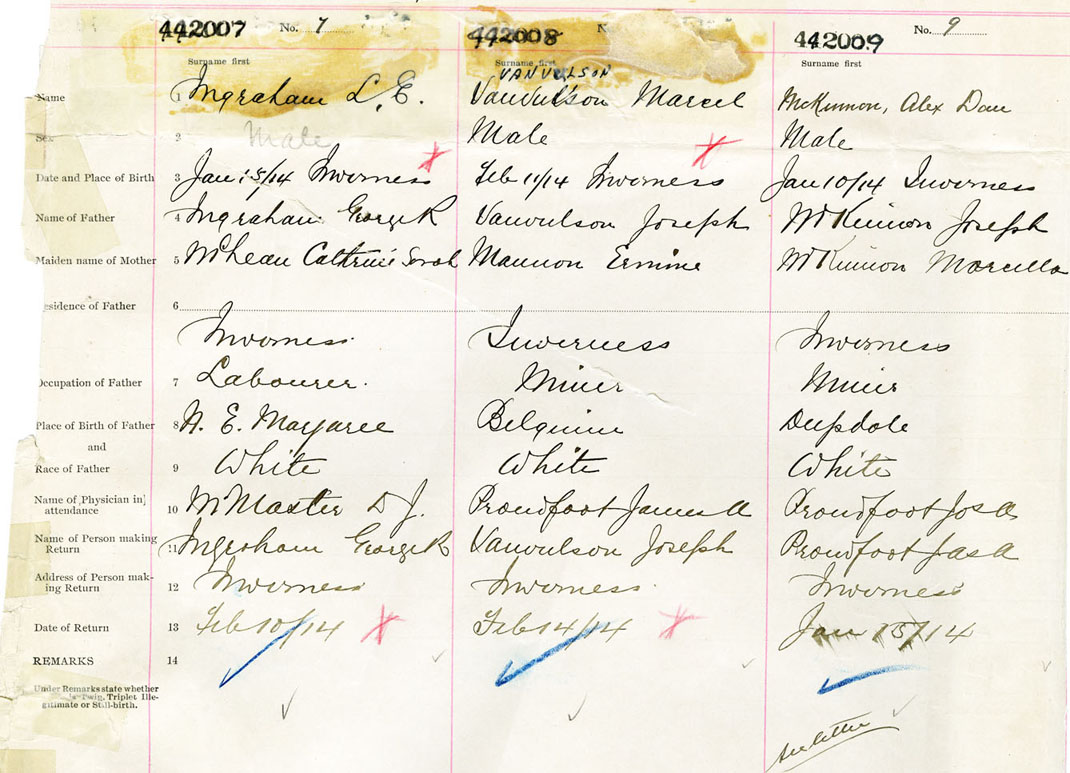 442007 No. 7 442008 N 442009 No. 9
Surname first Surname first Surname first
VANVULSON
Name 1 Ingraham L. E. Vanvulson Marcel McKinnon, Alex Dan
Sex 2 Male Male Male
Date and Place of Birth 3 Jan 15/14 Inverness Feb 11/14 Inverness Jan 10/14 Inverness
Name of Father 4 Ingraham George R Vanvulson Joseph McKinnon Joseph
Maiden name of Mother 5 McLean Sarah Mannon Ermine McKinnon Marcella
esidence of Father 6
Inverness Inverness Inverness
Occupation of Father 7 Labourer. Miner Miner
Place of Birth of Father 8 N. E. Margaree Belguim Deepdale
and
Race of Father 9 White White White
Name of Physician in
attendance 10 McMaster D J. Proudfoot James A Proudfoot Jas A
Name of Person making
Return 11 Ingraham George R Vanvulson Joseph Proudfoot Jas A
Address of Person mak-
ing Return 12 Inverness Inverness Inverness
Date of Return 13 Feb 10/14 Feb 14/14 Jan 15/14
REMARKS 14
Under Remarks state whether
is Twin, Triplet Ille-
gitimate or Still-birth.